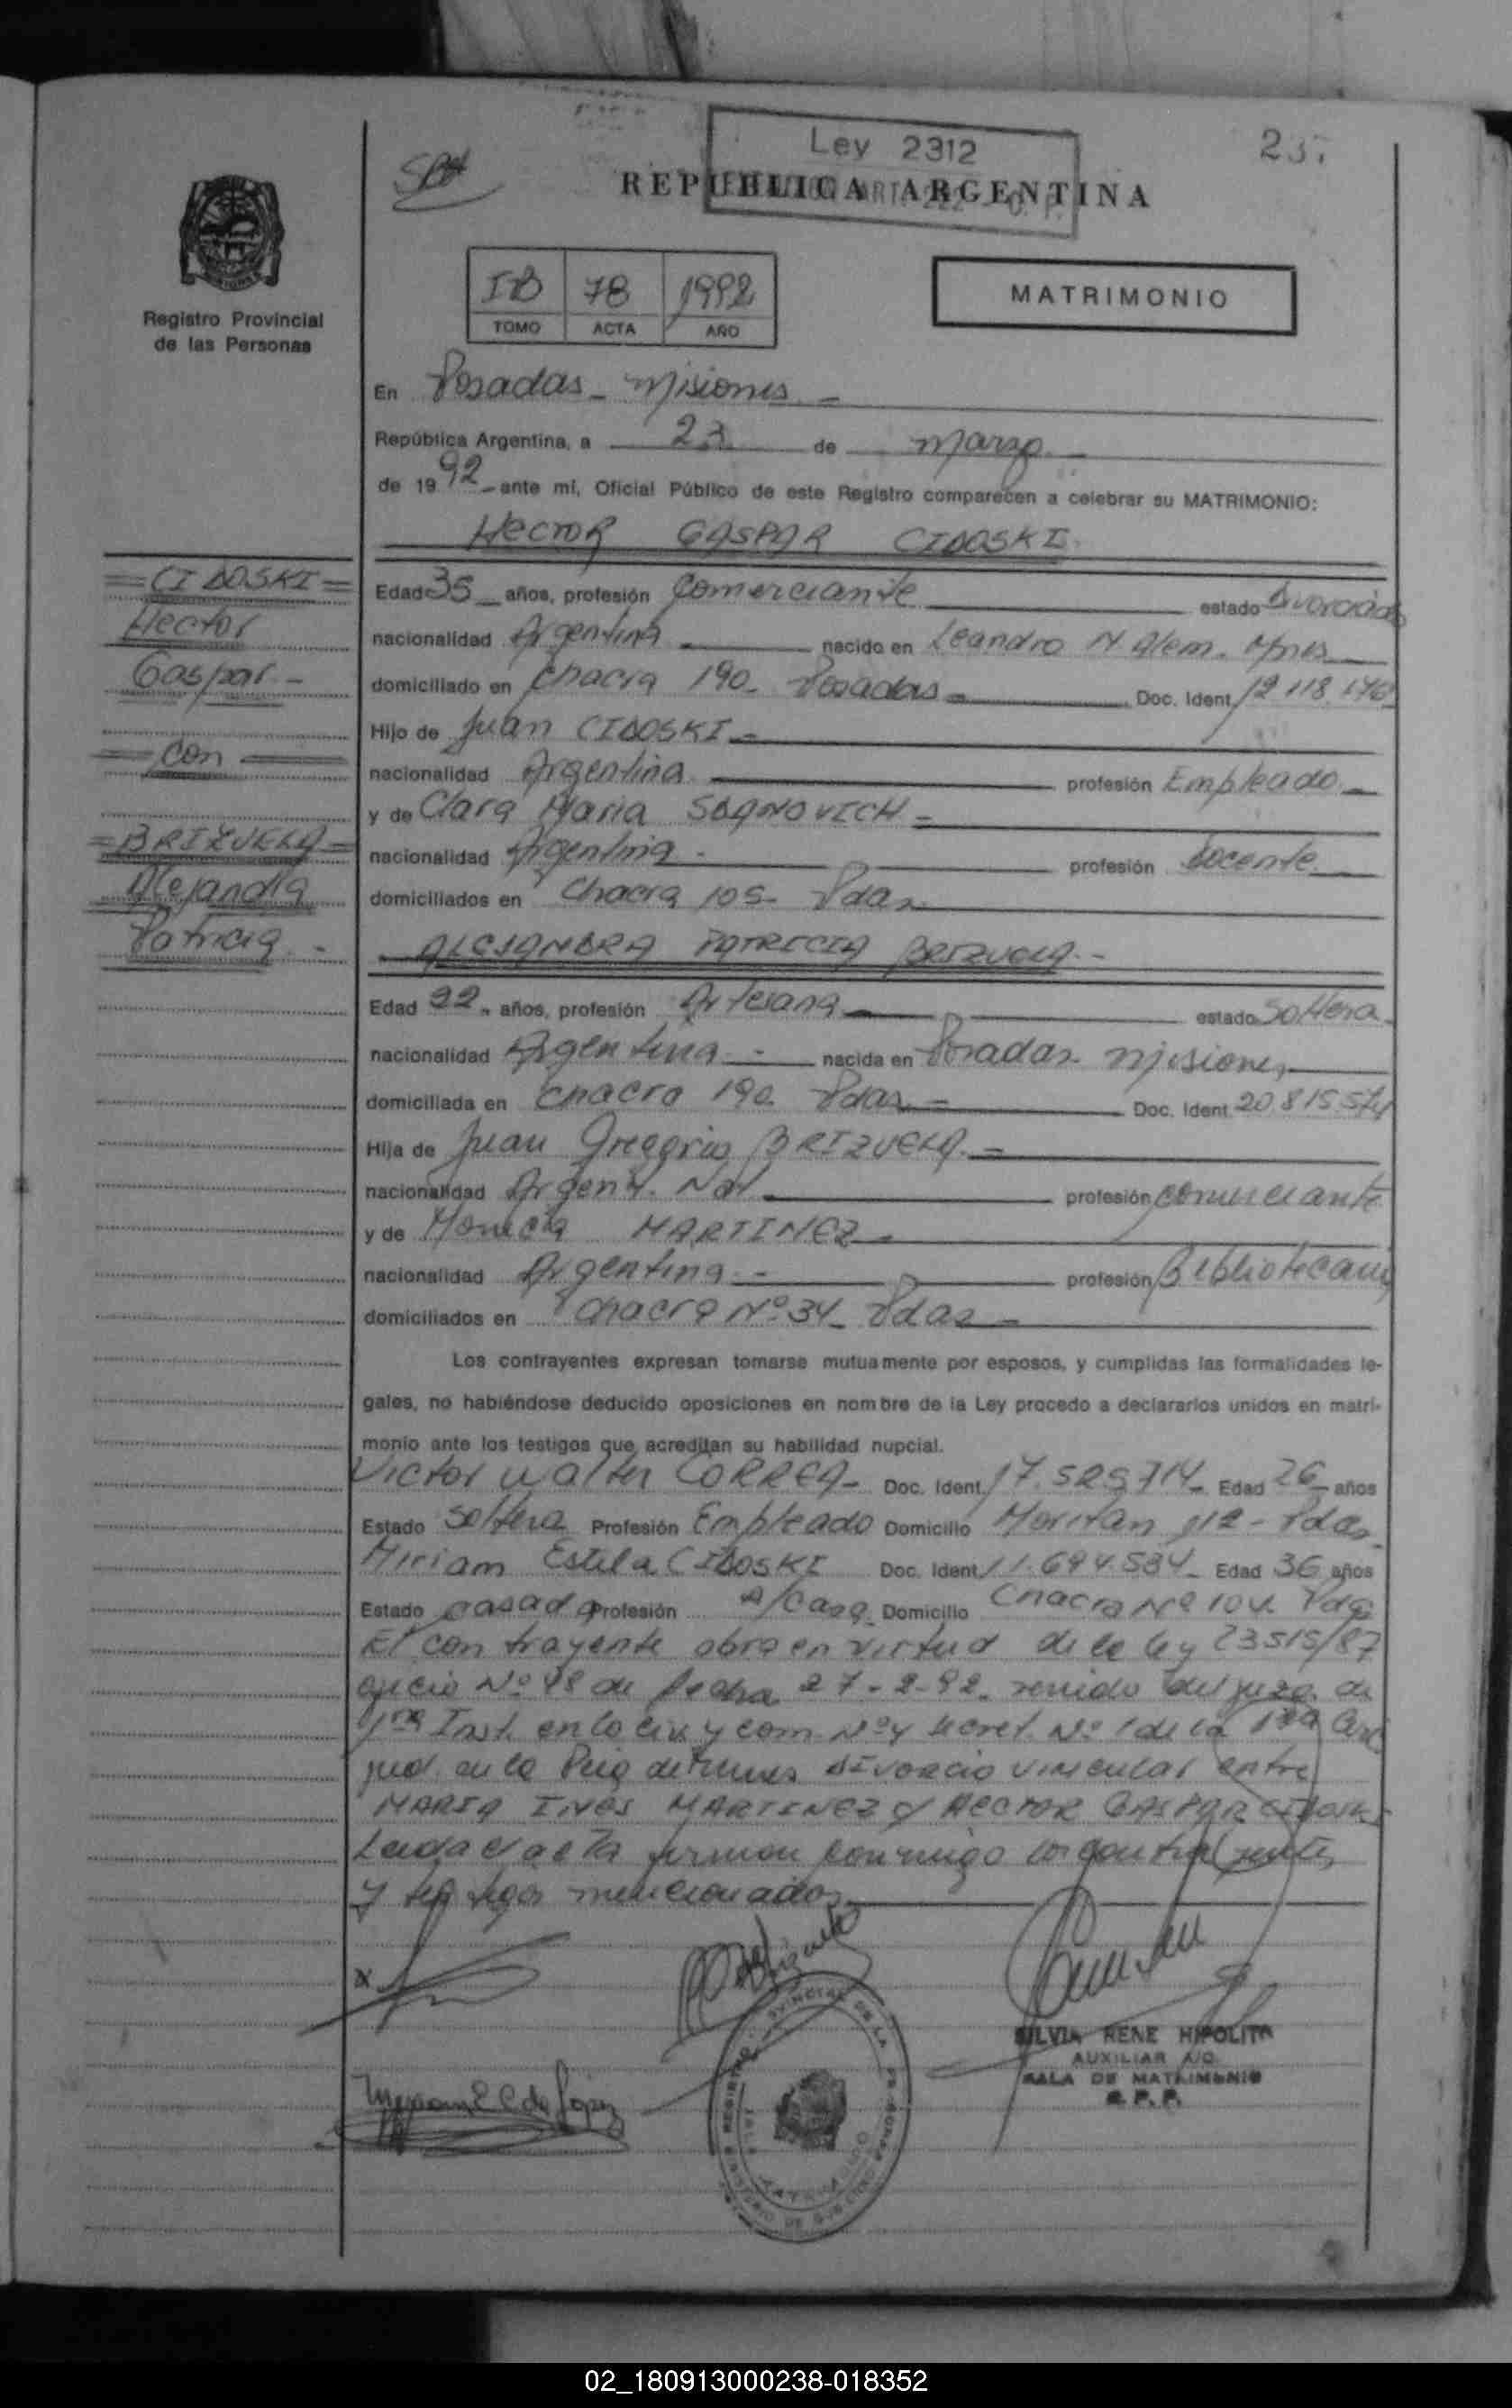 Ley 2312
237
REPUBLICA ARGENTINA
IB 78 1992
TOMO ACTA AÑO
MATRIMONIO
Registro Provincial
de las Personas
En Posadas - Misiones -
República Argentina, a 23 de marzo
de 1992 ante mí, Oficial Público de este Registro comparecen a celebrar su MATRIMONIO:
HECTOR GASPAR CIDOSKI
= CIDOSKI =
Hector
Gaspar -
= Con =
= BRIZUELA =
Alejandra
Patricia -
Edad 35 años, profesión Comerciante estado Divorciado
nacionalidad Argentina nacido en Leandro N. Alem. Mnes
domiciliado en Chacra 190 - Posadas - Doc. Ident. 12.118.170
Hijo de Juan CIDOSKI -
nacionalidad Argentina profesión Empleado -
y de Clara Maria SDANOVICH -
nacionalidad Argentina - profesión Docente
domiciliados en Chacra 105 - Pdas
ALEJANDRA PATRICIA BRIZUELA -
Edad 22 años, profesión Artesana estado Soltera
nacionalidad Argentina - nacida en Posadas - Misiones
domiciliada en Chacra 190 Pdas - Doc. Ident. 20.815.574
Hija de Juan Gregorio BRIZUELA -
nacionalidad Argent. Nat profesión Comerciante
y de Monica MARTINEZ -
nacionalidad Argentina - profesión Bibliotecaria
domiciliados en Chacra Nº 34 - Pdas -
Los contrayentes expresan tomarse mutuamente por esposos, y cumplidas las formalidades le-
gales, no habiéndose deducido oposiciones en nombre de la Ley procedo a declararlos unidos en matri-
monio ante los testigos que acreditan su habilidad nupcial.
Victor Walter CORREA - Doc. Ident. 17.529.714 - Edad 26 años
Estado Soltero Profesión Empleado Domicilio 112 - Pdas
Miriam Estela CIDOSKI Doc. Ident. 11.694.534 - Edad 36 años
Estado casada Profesión A/Casa Domicilio Chacra Nº 104 Pdas
El contrayente obra en virtud de la ley 23515/87
oficio Nº 98 de fecha 27-2-92 del juzg. de
1ra Inst. en lo civ. y com. Nº 4 secret. Nº 1 de la 1ra Circ
jud. de la Pcia de Mnes divorcio vincular entre
MARIA INES MARTINEZ y HECTOR GASPAR CIDOSKI
Leida el acta firman conmigo los contrayentes
y testigos mencionados
SILVIA RENE HIPOLITA
AUXILIAR A/C
SALA DE MATRIMONIO
R. P. P.
02_180913000238-018352